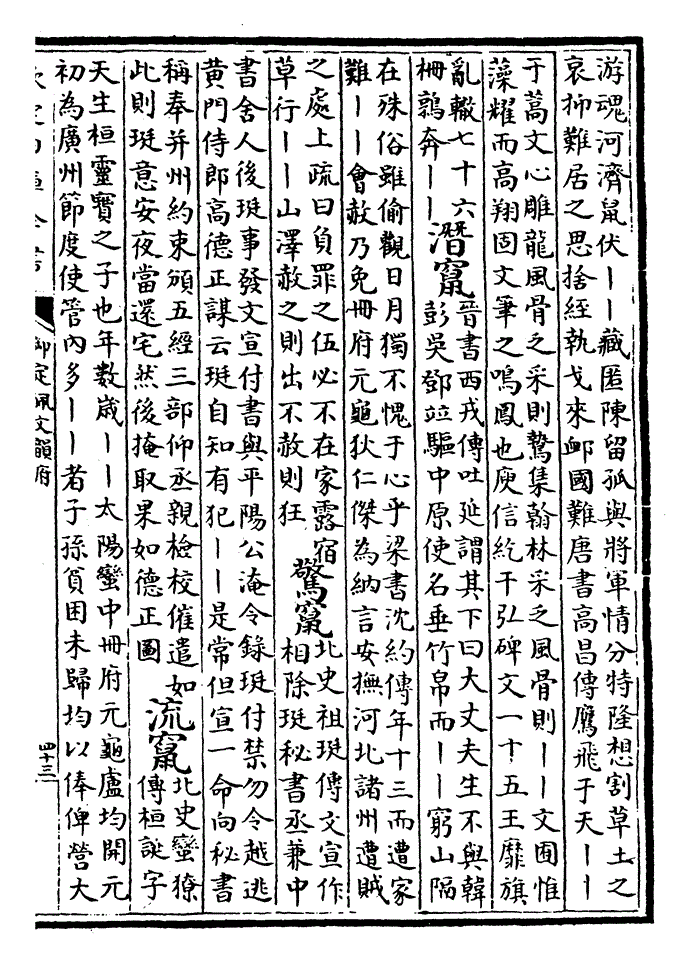 游魂河濟鼠伏丨丨藏匿陳留孤與將軍情分特隆想割草土之
哀抑難居之思捨經執戈來衈國難唐書高昌傳鷹飛于天丨丨
于蒿文心雕龍風骨乏采則鷙集翰林采乏風骨則丨丨文囿惟
藻耀而高翔固文筆之鳴鳳也庾信紇干弘碑文一十五王靡旗
亂轍七十六
柵鶉奔丨丨
潛竄
晉書西戎傳吐延謂其下曰大丈夫生不與韓
彭吳鄧竝驅中原使名垂竹帛而丨丨窮山隔
在殊俗雖偷觀日月獨不愧于心乎梁書沈約傳年十三而遭家
難丨丨會赦乃免冊府元龜狄仁傑為納言安撫河北諸州遭賊
之處上疏曰負罪之伍必不在家露宿
草行丨丨山澤赦之則出不赦則狂
驚竄
北史祖珽傳文宣作
相除珽秘書丞兼中
書舍人後珽事發文宣付書與平陽公淹令錄珽付禁勿令越逃
黄門侍郎高德正謀云珽自知有犯丨丨是常但宣一命向秘書
稱奉并州約束須五經三部仰丞親檢校催遣如
此則珽意安夜當還宅然後掩取果如德正圖
流竄
北史蠻獠
傳桓誕字
天生桓靈寶之子也年數歲丨丨太陽蠻中冊府元龜盧均開元
初為廣州節度使管內多丨丨者子孫貧困未歸均以俸俾營大
欽定四庫全書
御定佩文韻府
四十三